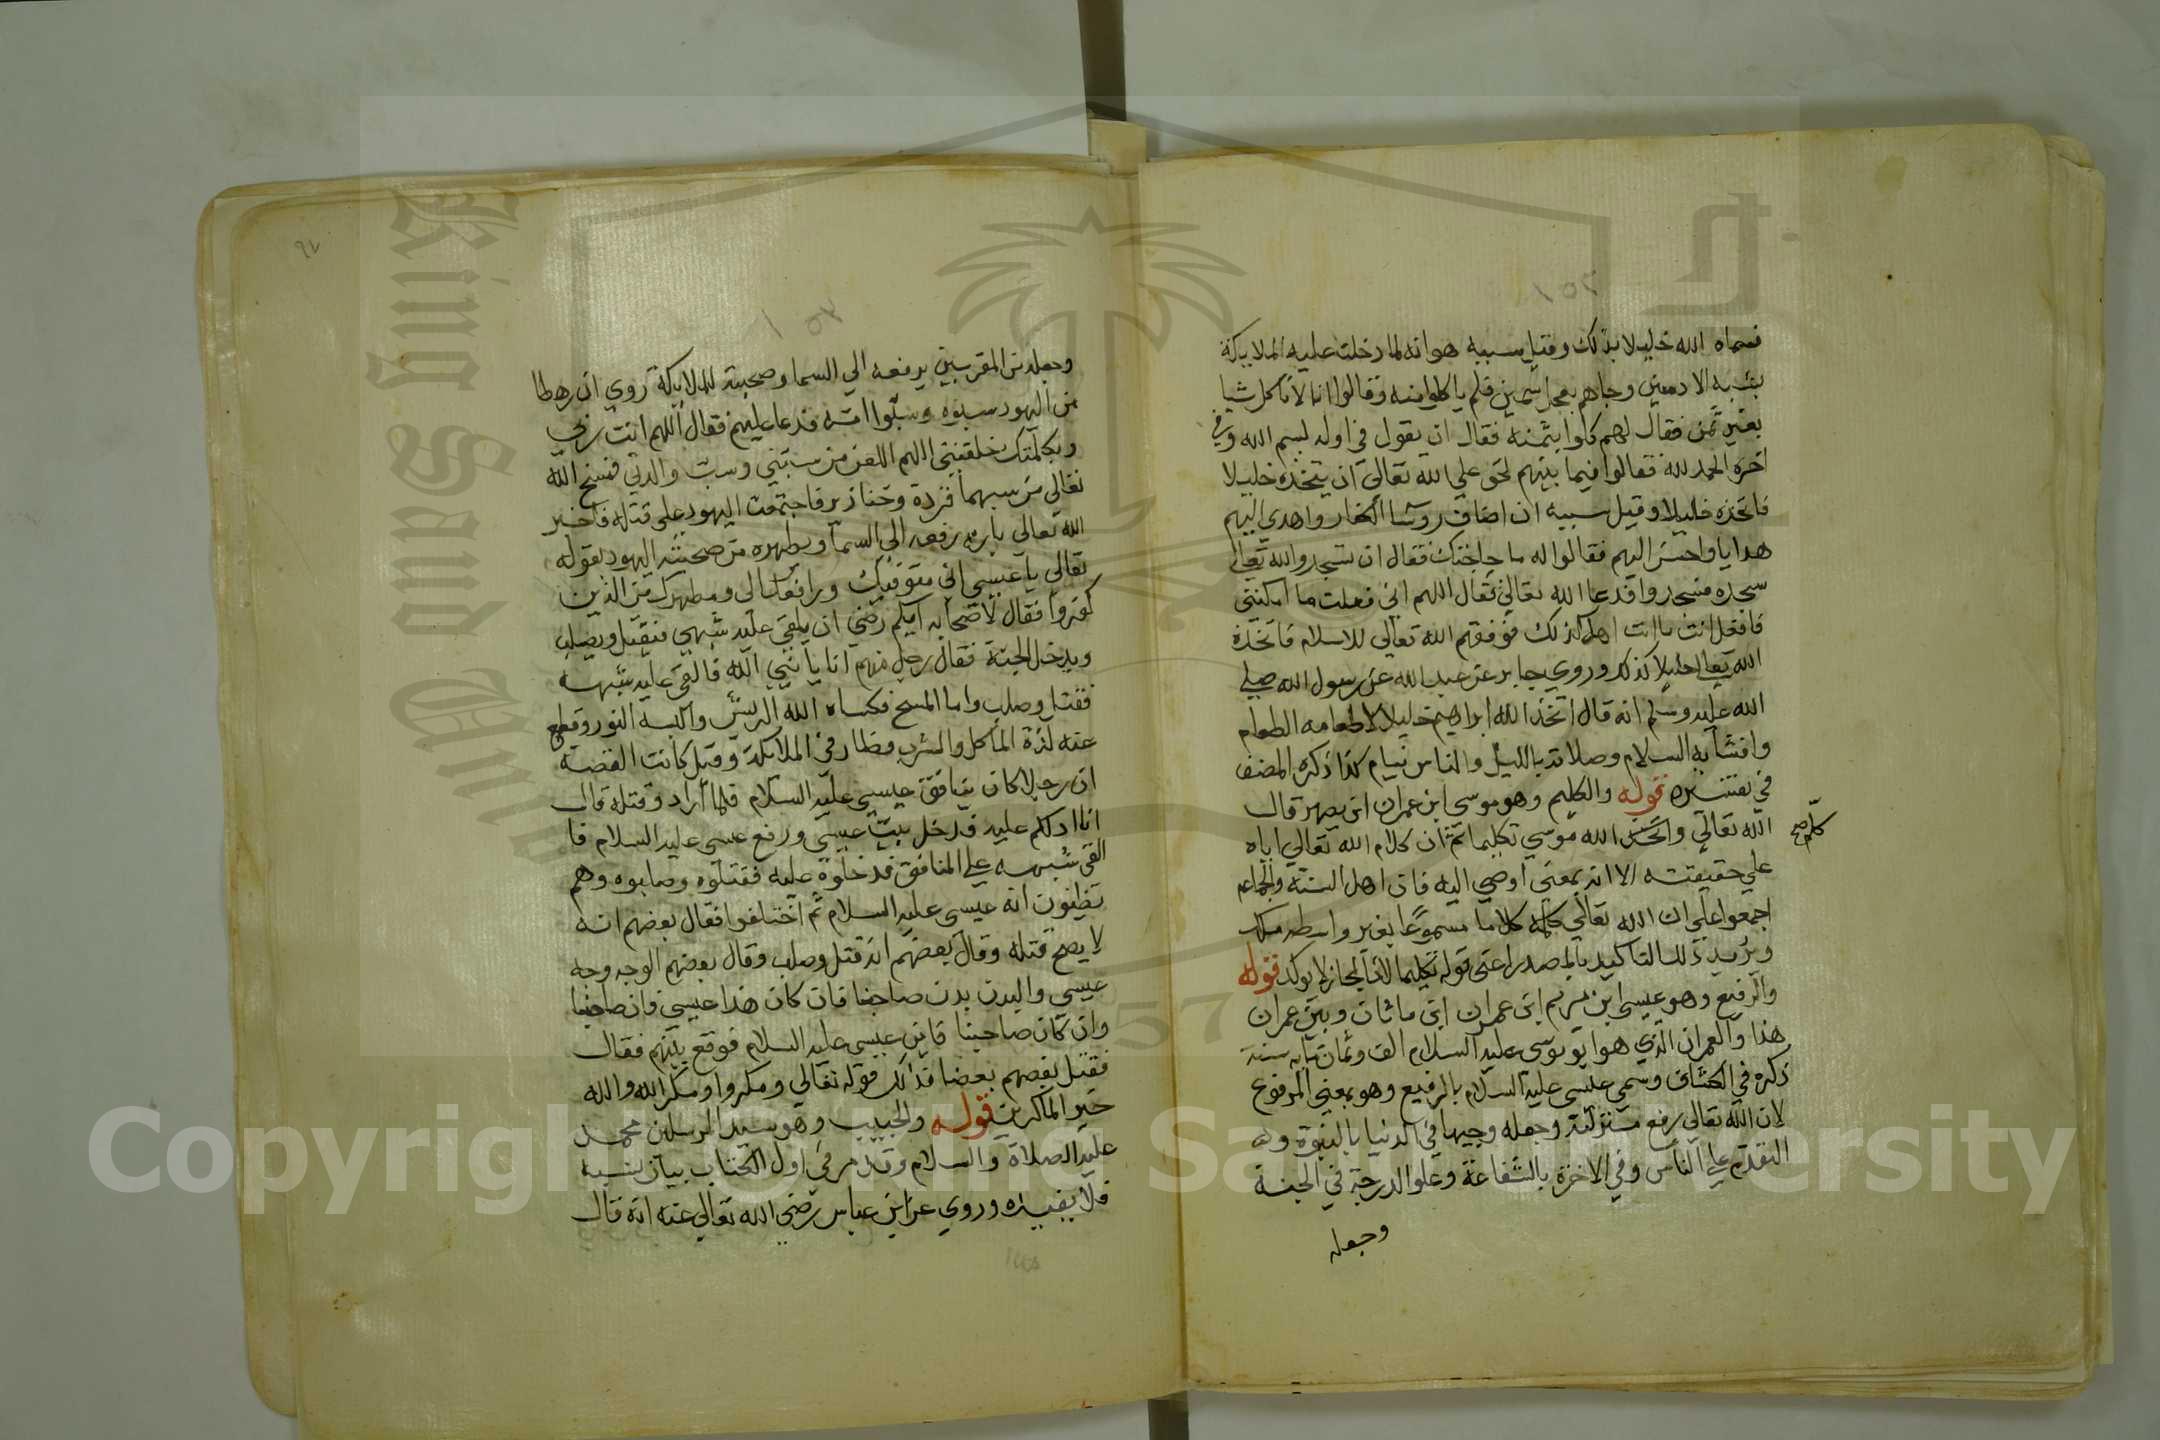 فسماه الله خليلا بذلك وقيل سببه هو انه لما دخلت عليه الملايكة
بشبه الادميين وجاهم بعجل سمين فلم ياكلوا منه وقالوا انا لا ناكل شيا
بغير ثمن فقال لهم كلوا بثمنه فقال ان يقول في اوله بسم الله وفي
اخره الحمد لله فقالوا فيما بينهم لحق علي الله تعالي ان يتخذه خليلا
فاتخذه خليلا وقيل سببه ان اضاف روسا الكفار واهدي اليهم
هدايا واحسن اليهم فقالوا له ما حاجتك فقال ان تسجدوا لله تعالي
سجده فسجدوا فدعا الله تعالي فقال اللهم اني فعلت ما امكنني
فافعل انت ما انت اهل لذلك فوفقهم الله تعالي للاسلام فاتخذه
الله تعالي خليلا كذلك وروي جابر عن عبد الله عن رسول الله صلي
الله عليه وسلم انه قال اتخذ الله ابراهيم خليلا لاطعامه الطعام
وافشآيه السلام وصلاته بالليل والناس نيام كذا ذكره المصنف
في تفسيره قوله والكليم وهو موسي ابن عمران ابن يصهر قال
الله تعالي وكلم الله موسي تكليما ثم ان كلام الله تعالي اياه
كلم صح
علي حقيقته لا انه بمعني اوحي اليه فان اهل السنة والجماعه
اجمعوا علي ان الله تعالي كلمه كلاما مسموعا بغير واسطه ملك
ويريد ذلك التاكيد بالمصدر اعني قوله تكليما لان المجاز لا يوكد قوله
والرفيع وهو عيسي ابن مريم ابن عمران ابن ماثان وبين عمران
هذا والعمران الذي هو ابو موسي عليه السلام الف وثمان مايه سنة
ذكره في الكشاف وسمي عيسي عليه السلام بالرفيع وهو بمعني المرفوع
لان الله تعالي رفع منزلته وجعله وجيها في الدنيا بالنبوة و
التقدم علي الناس وفي الاخرة بالشفاعة وعلو الدرجة في الجنة
وجعله
وجعله من المقربين يرفعه الي السما وصحبته للملايكة روي ان رهطا
من اليهود سبوه وسبوا امه فدعا عليهم فقال اللهم انت ربي
وبكلمتك خلقتني اللهم العن من سبني وسب والدتي فمسخ الله
تعالي من سبهما قردة وخنازير فاجتمعت اليهود علي قتله فاخبر
الله تعالي بانه يرفعه الي السمآ ويطهره من صحبته اليهود بقوله
تعالي يا عيسي اني متوفيك ورافعك الي ومطهرك من الذين
كفروا فقال لاصحابه ايكم رضي ان يلقي عليه شبهي فيقتل ويصلب
ويدخل الجنة فقال رجل منهم انا يا نبي الله فالقي عليه شبهه
فقتل وصلب واما المسيح فكساه الله الريش والبسه النور وقطع
عنه لذة الماكل والمشرب فطار في الملائكة وقيل كانت القصة
ان رجلا كان ينافق عيسي عليه السلام فلما اراد وقتله قال
انا ادلكم عليه فدخل بيت عيسي ورفع عيسي عليه السلام فا
القي شبهه علي المنافق فدخلوة عليه فقتلوه وصلبوه وهم
يظنون انه عيسي عليه السلام ثم اختلفوا فقال بعضهم انه
لا يصح قتله وقال بعضهم انه قتل وصلب وقال بعضهم الوجه وجه
عيسي والبدن بدن صاحبنا فان كان هذا عيسي فاين صاحبنا
وان كان صاحبنا فاين عيسي عليه السلام فوقع بينهم فقال
فقتل بعضهم بعضا فذلك قوله تعالي ومكروا ومكر الله والله
خير الماكرين قوله والحبيب وهو سيد المرسلين محمد
عليه الصلاة والسلام وقد مر في اول الكتاب بيان نسبه
فلا يفيده وروي عن ابن عباس رضي الله تعالي عنه انه قال